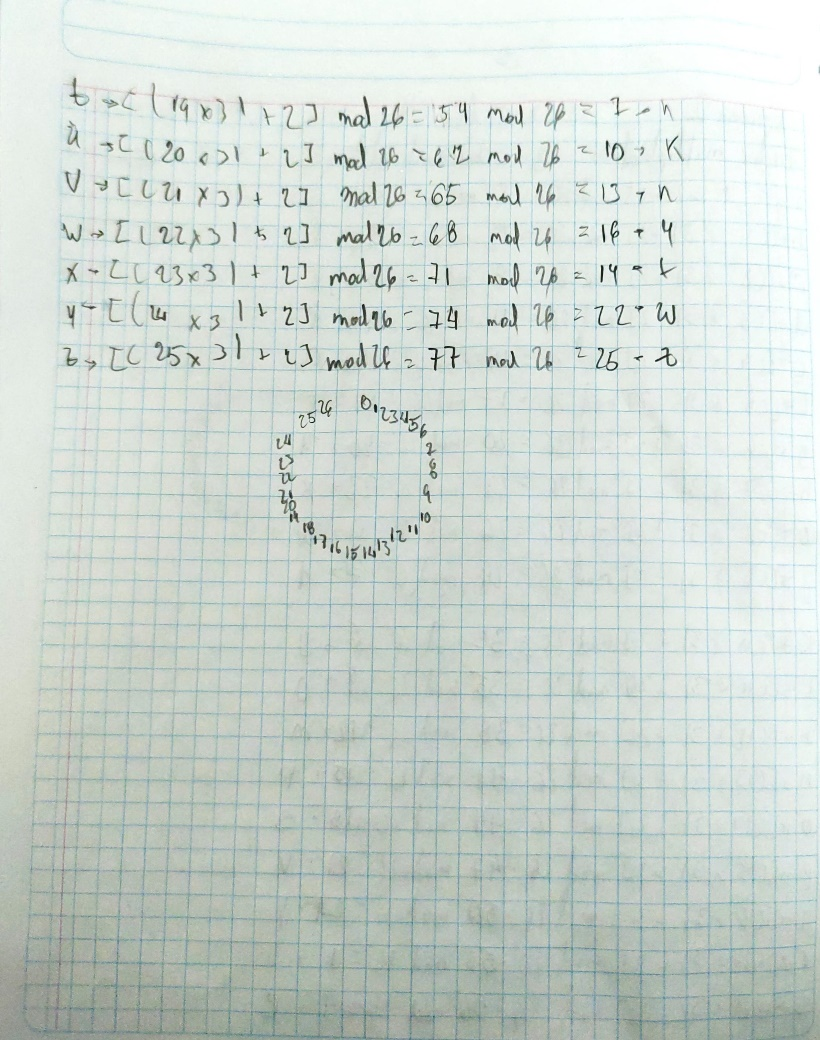 t → [ (19 x 3) + 2] mod 26 = 54 mod 26 = 7 → h
u → [ (20 x 3) + 2] mod 26 = 62 mod 26 = 10 → K
V → [ (21 x 3) + 2] mod 26 = 65 mod 26 = 13 → n
w → [ (22x3) + 2] mod 26 = 68 mod 26 = 16 → q
x → [ (23x3) + 2] mod 26 = 71 mod 26 = 19 → t
y → [ (24 x 3) + 2] mod 26 = 74 mod 26 = 22 → w
z → [ (25x 3) + 2] mod 26 = 77 mod 26 = 25 → z
0 1 2 3 4 5 6 7 8 9 10 11 12 13 14 15 16 17 18 19 20 21 22 23 24 25 26